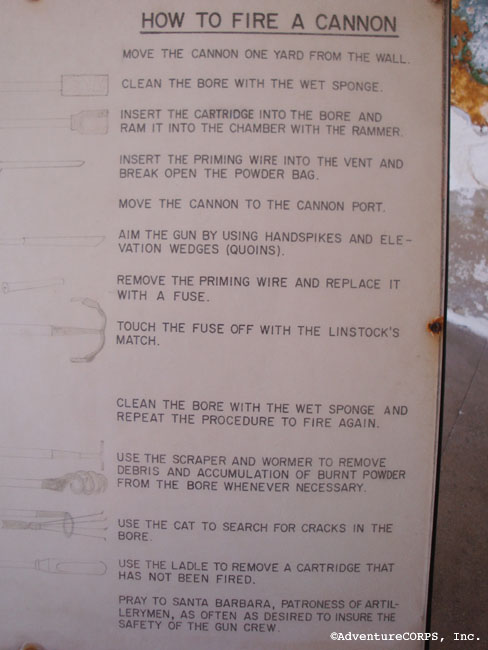 HOW TO FIRE A CANNON
MOVE THE CANNON ONE YARD FROM THE WALL.
CLEAN THE BORE WITH THE WET SPONGE.
INSERT THE CARTRIDGE INTO THE BORE AND
RAM IT INTO THE CHAMBER WITH THE RAMMER.
INSERT THE PRIMING WIRE INTO THE VENT AND
BREAK OPEN THE POWDER BAG.
MOVE THE CANNON TO THE CANNON PORT.
AIM THE GUN BY USING HANDSPIKES AND ELE-
VATION WEDGES (QUOINS).
REMOVE THE PRIMING WIRE AND REPLACE IT
WITH A FUSE.
TOUCH THE FUSE OFF WITH THE LINSTOCK'S
MATCH.
CLEAN THE BORE WITH THE WET SPONGE AND
REPEAT THE PROCEDURE TO FIRE AGAIN.
USE THE SCRAPER AND WORMER TO REMOVE
DEBRIS AND ACCUMULATION OF BURNT POWDER
FROM THE BORE WHENEVER NECESSARY.
USE THE CAT TO SEARCH FOR CRACKS IN THE
BORE.
USE THE LADLE TO REMOVE A CARTRIDGE THAT
HAS NOT BEEN FIRED.
PRAY TO SANTA BARBARA, PATRONESS OF ARTIL-
LERYMEN, AS OFTEN AS DESIRED TO INSURE THE
SAFETY OF THE GUN CREW.
©AdventureCORPS, Inc.